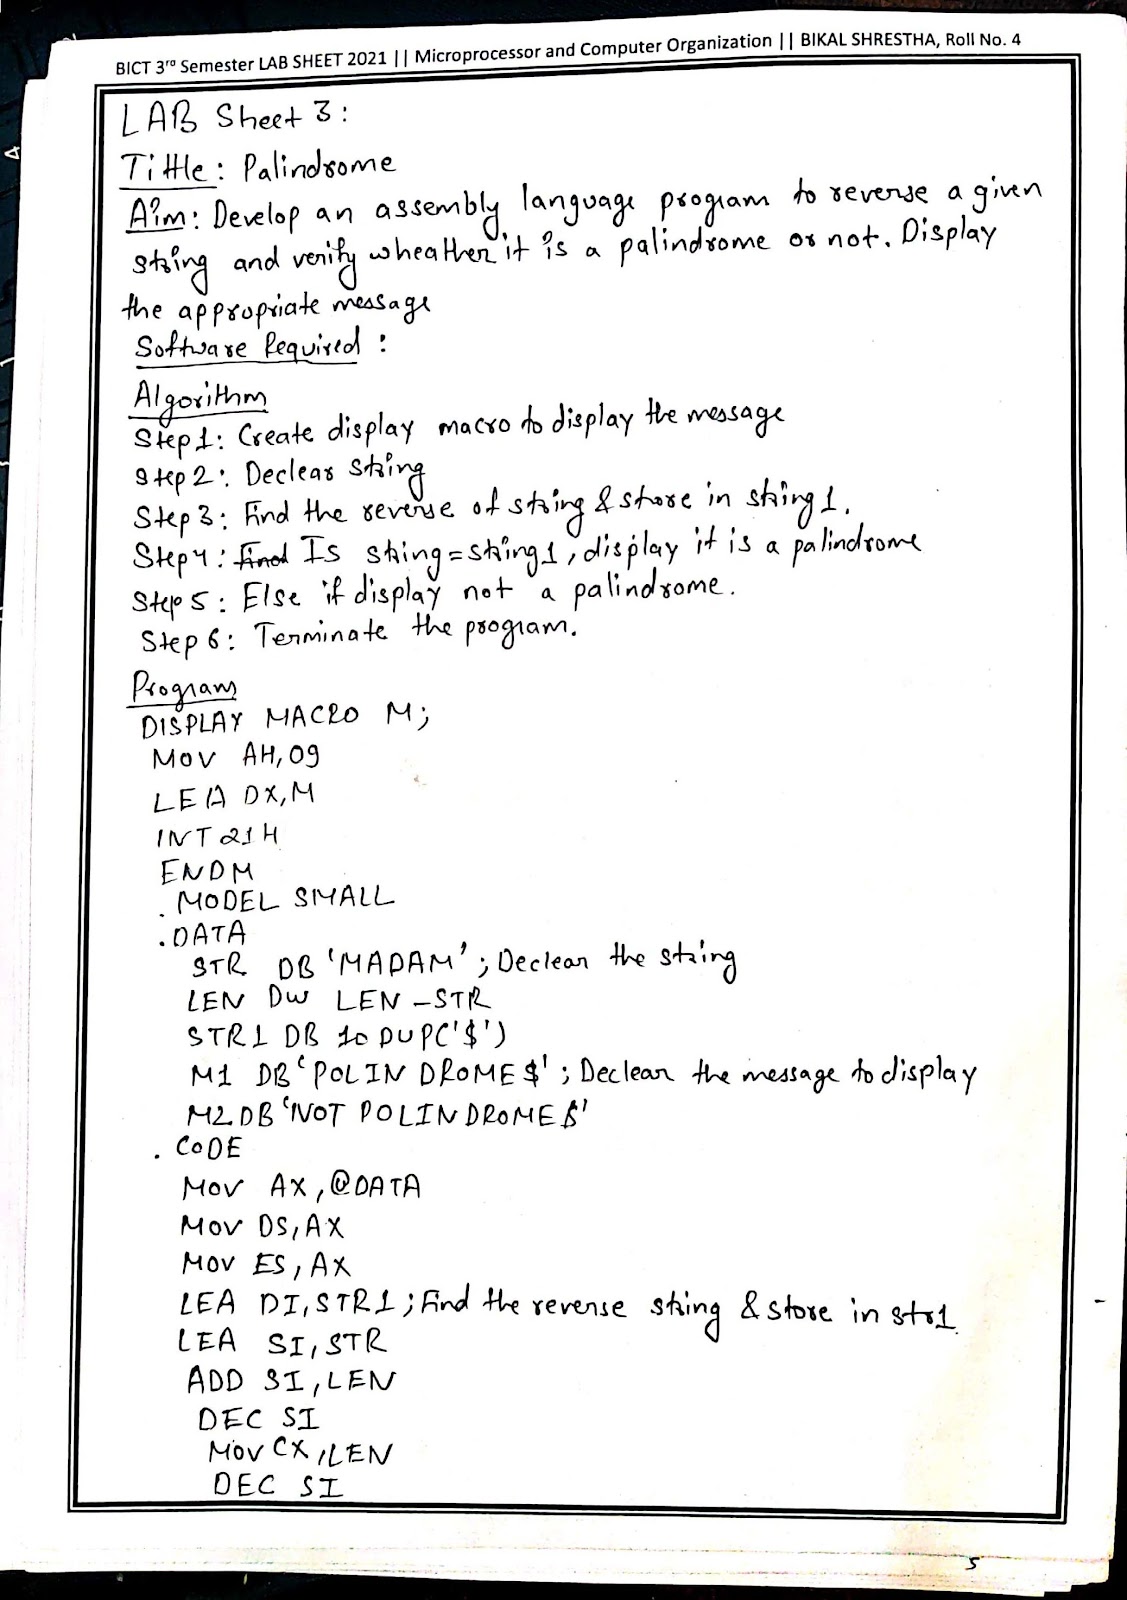 BICT 3rd Semester LAB SHEET 2021 || Microprocessor and Computer Organization || BIKAL SHRESTHA, Roll No. 4
LAB Sheet 3:
Tittle: Palindrome
Aim: Develop an assembly language program to reverse a given
string and verify wheather it is a palindrome or not. Display
the appropriate message
Software Required:
Algorithm
Step 1: Create display macro to display the message
Step 2: Declear string
Step 3: Find the reverse of string & store in string 1.
Step 4: Find Is string = string 1, display it is a palindrome
Step 5: Else if display not a palindrome.
Step 6: Terminate the program.
Program
DISPLAY MACRO M;
MOV AH,09
LEA DX,M
INT 21H
ENDM
.MODEL SMALL
.DATA
STR DB 'MADAM' ; Declear the string
LEN DW LEN-STR
STR1 DB 10 DUP('$')
M1 DB 'POLINDROME$' ; Declear the message to display
M2 DB 'NOT POLINDROME$'
.CODE
MOV AX,@DATA
MOV DS,AX
MOV ES,AX
LEA DI,STR1 ; Find the reverse string & store in str1.
LEA SI,STR
ADD SI,LEN
DEC SI
MOV CX,LEN
DEC SI
5